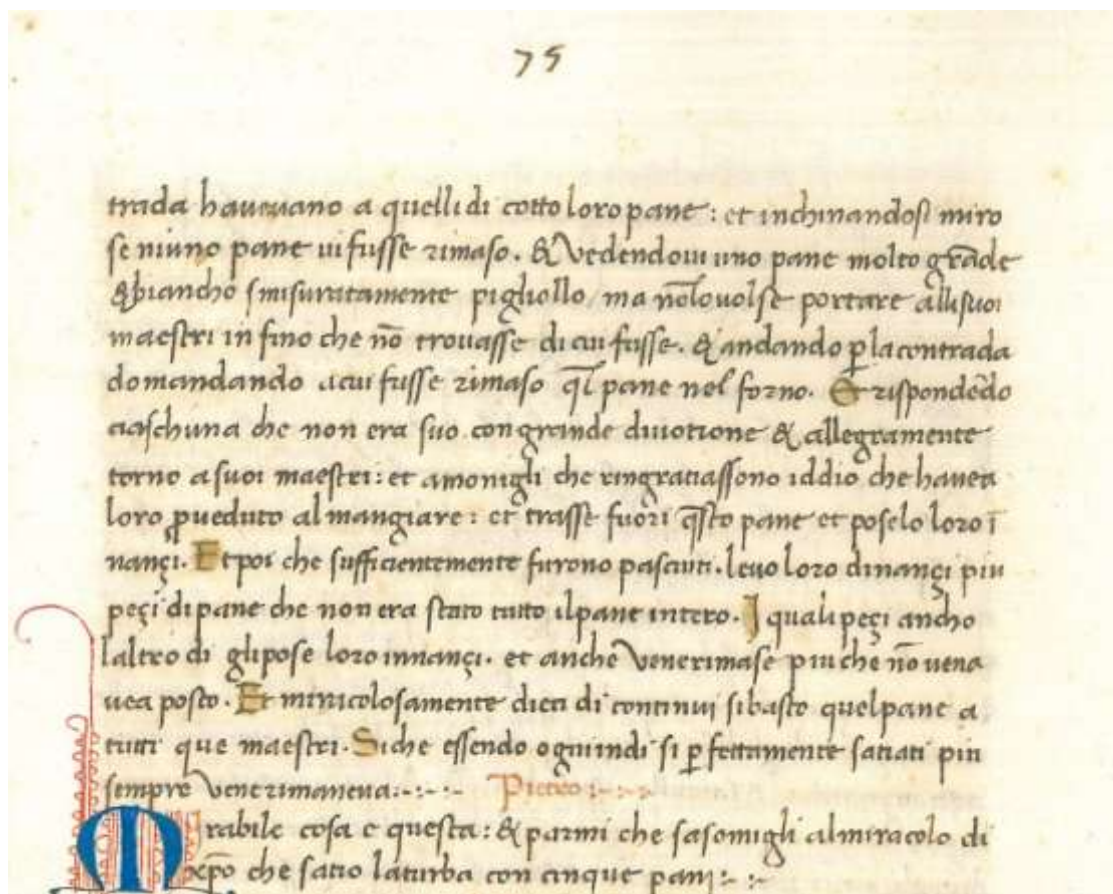 75
trada havevano a quelli di cotto loro pane : et inchinandosi miro
se niuno pane ui fusse rimaso . & Vedendoui uno pane molto grāde
& biancho smisuratamente pigliollo / ma nōlo uolse portare alli suoi
maestri in fino che nō trouasse di cui fusse . & andando ꝑ la contrada
domandando acui fusse rimaso q̄l pane nel forno . E rispondēdo
ciaschuna che non era suo con grande diuotione & allegramente
torno a suoi maestri : et amonigli che ringratiassono iddio che havea
loro ꝓueduto al mangiare : et trasse fuori q̄sto pane et poselo loro ī
nançi . Et poi che sufficientemente furono pasciuti . leuo loro dinançi piu
peçi di pane che non era stato tutto il pane intero . I quali peçi ancho
laltro di gli pose loro innançi . et anche Vene rimase piu che nō uena
uea posto . Et miracolosamente dieci di continui si basto quel pane a
tutti que maestri . Siche essendo ogniundi si ꝑfettamente satiati piu
sempre Vene rimaneua .-:-:- Pietro :-:-
Mirabile cosa e questa : & parmi che sasomigli al miracolo di
xp̄o che satio la turba con cinque pani :- :-